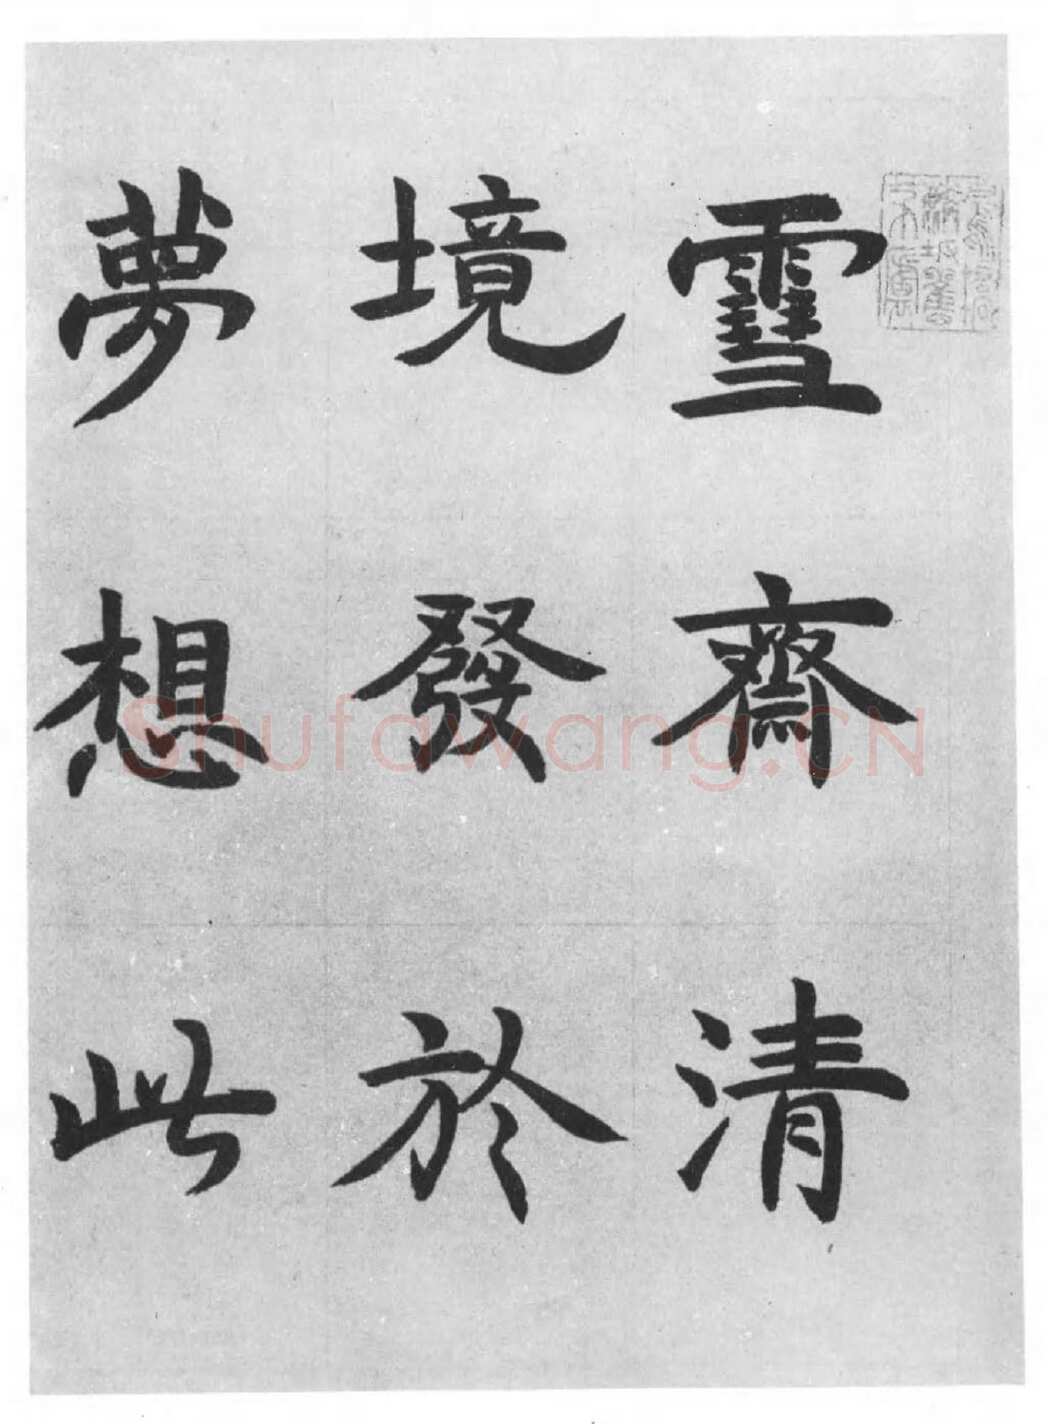 雪齋清
境發於
夢想此
Shufawang.CN